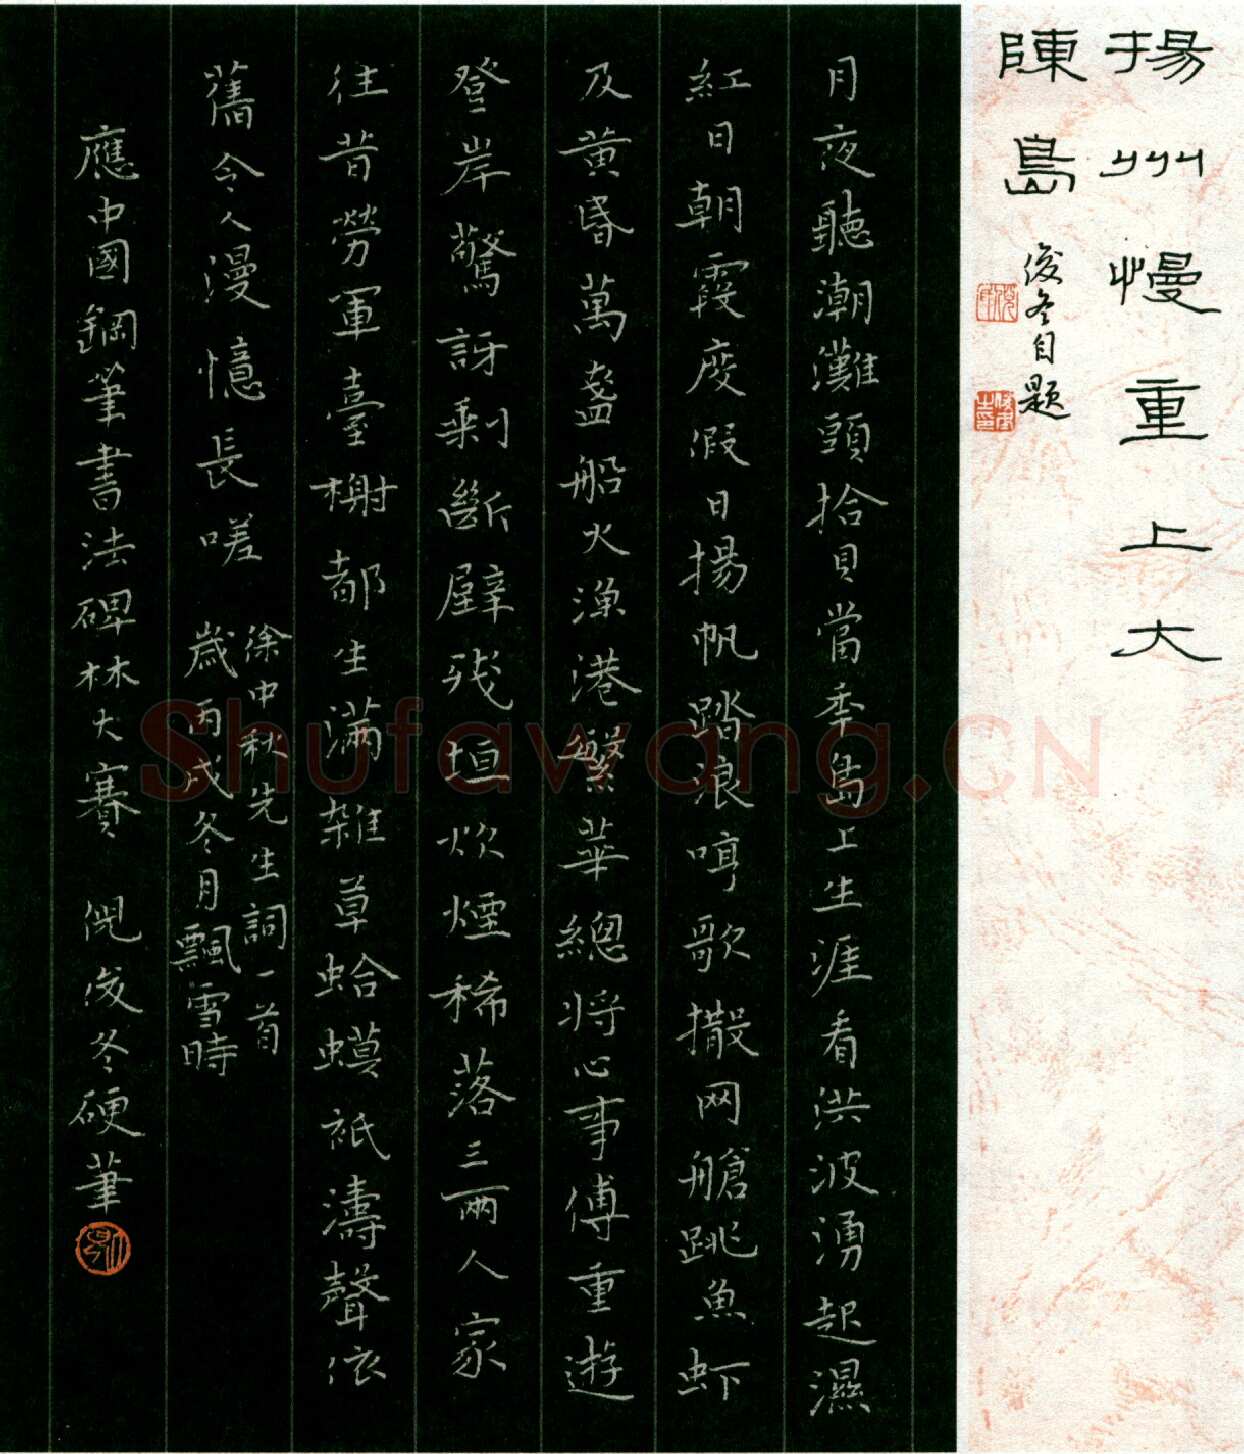 揚州慢重上大
陳島
俊冬自題
月夜聽潮灘頭拾貝當季島上生涯看洪波湧起濕
紅日朝霞度假日揚帆踏浪哼歌撒网艙跳魚虾
及黃昏萬盞船火漁港繁華總將心事傅重遊
登岸驚訝剩斷壁残垣炊煙稀落三两人家
往昔勞軍臺榭都生满雜草蛤蟆衹濤聲依
舊令人漫憶長嗟
徐中秋先生詞一首
歲丙戌冬月飄雪時
應中國鋼筆書法碑林大賽 倪俊冬硬筆
Shufawang.CN